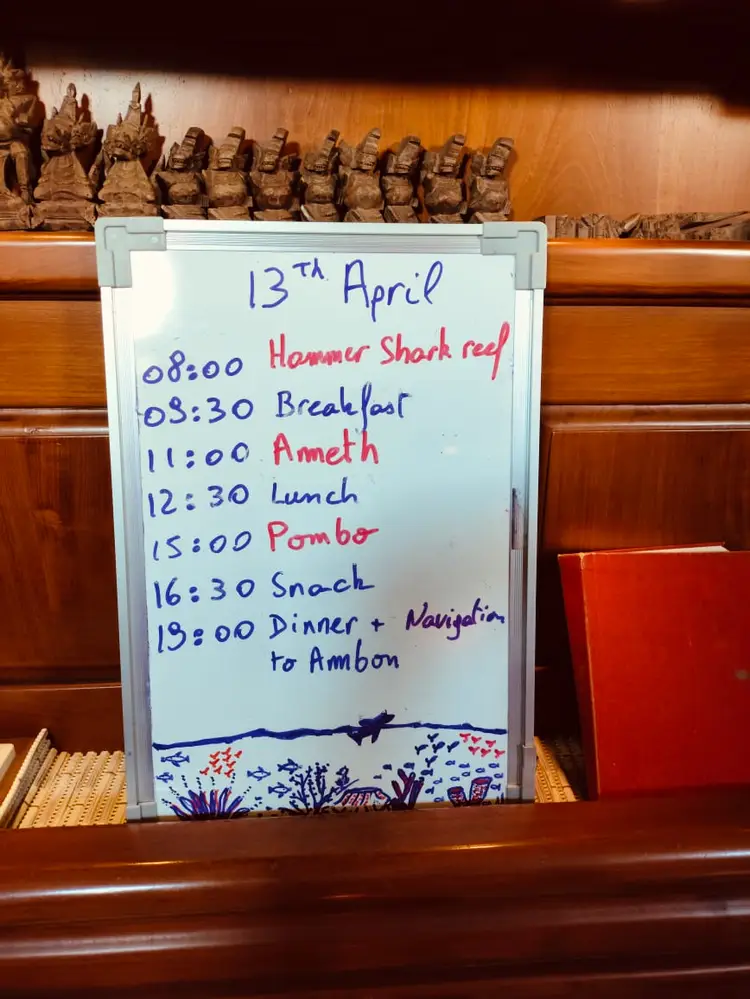 13Th April
08:00 Hammer Shark reef
09:30 Breakfast
11:00 Ameth
12:30 Lunch
15:00 Pombo
16:30 Snack
19:00 Dinner + Navigation
to Ambon